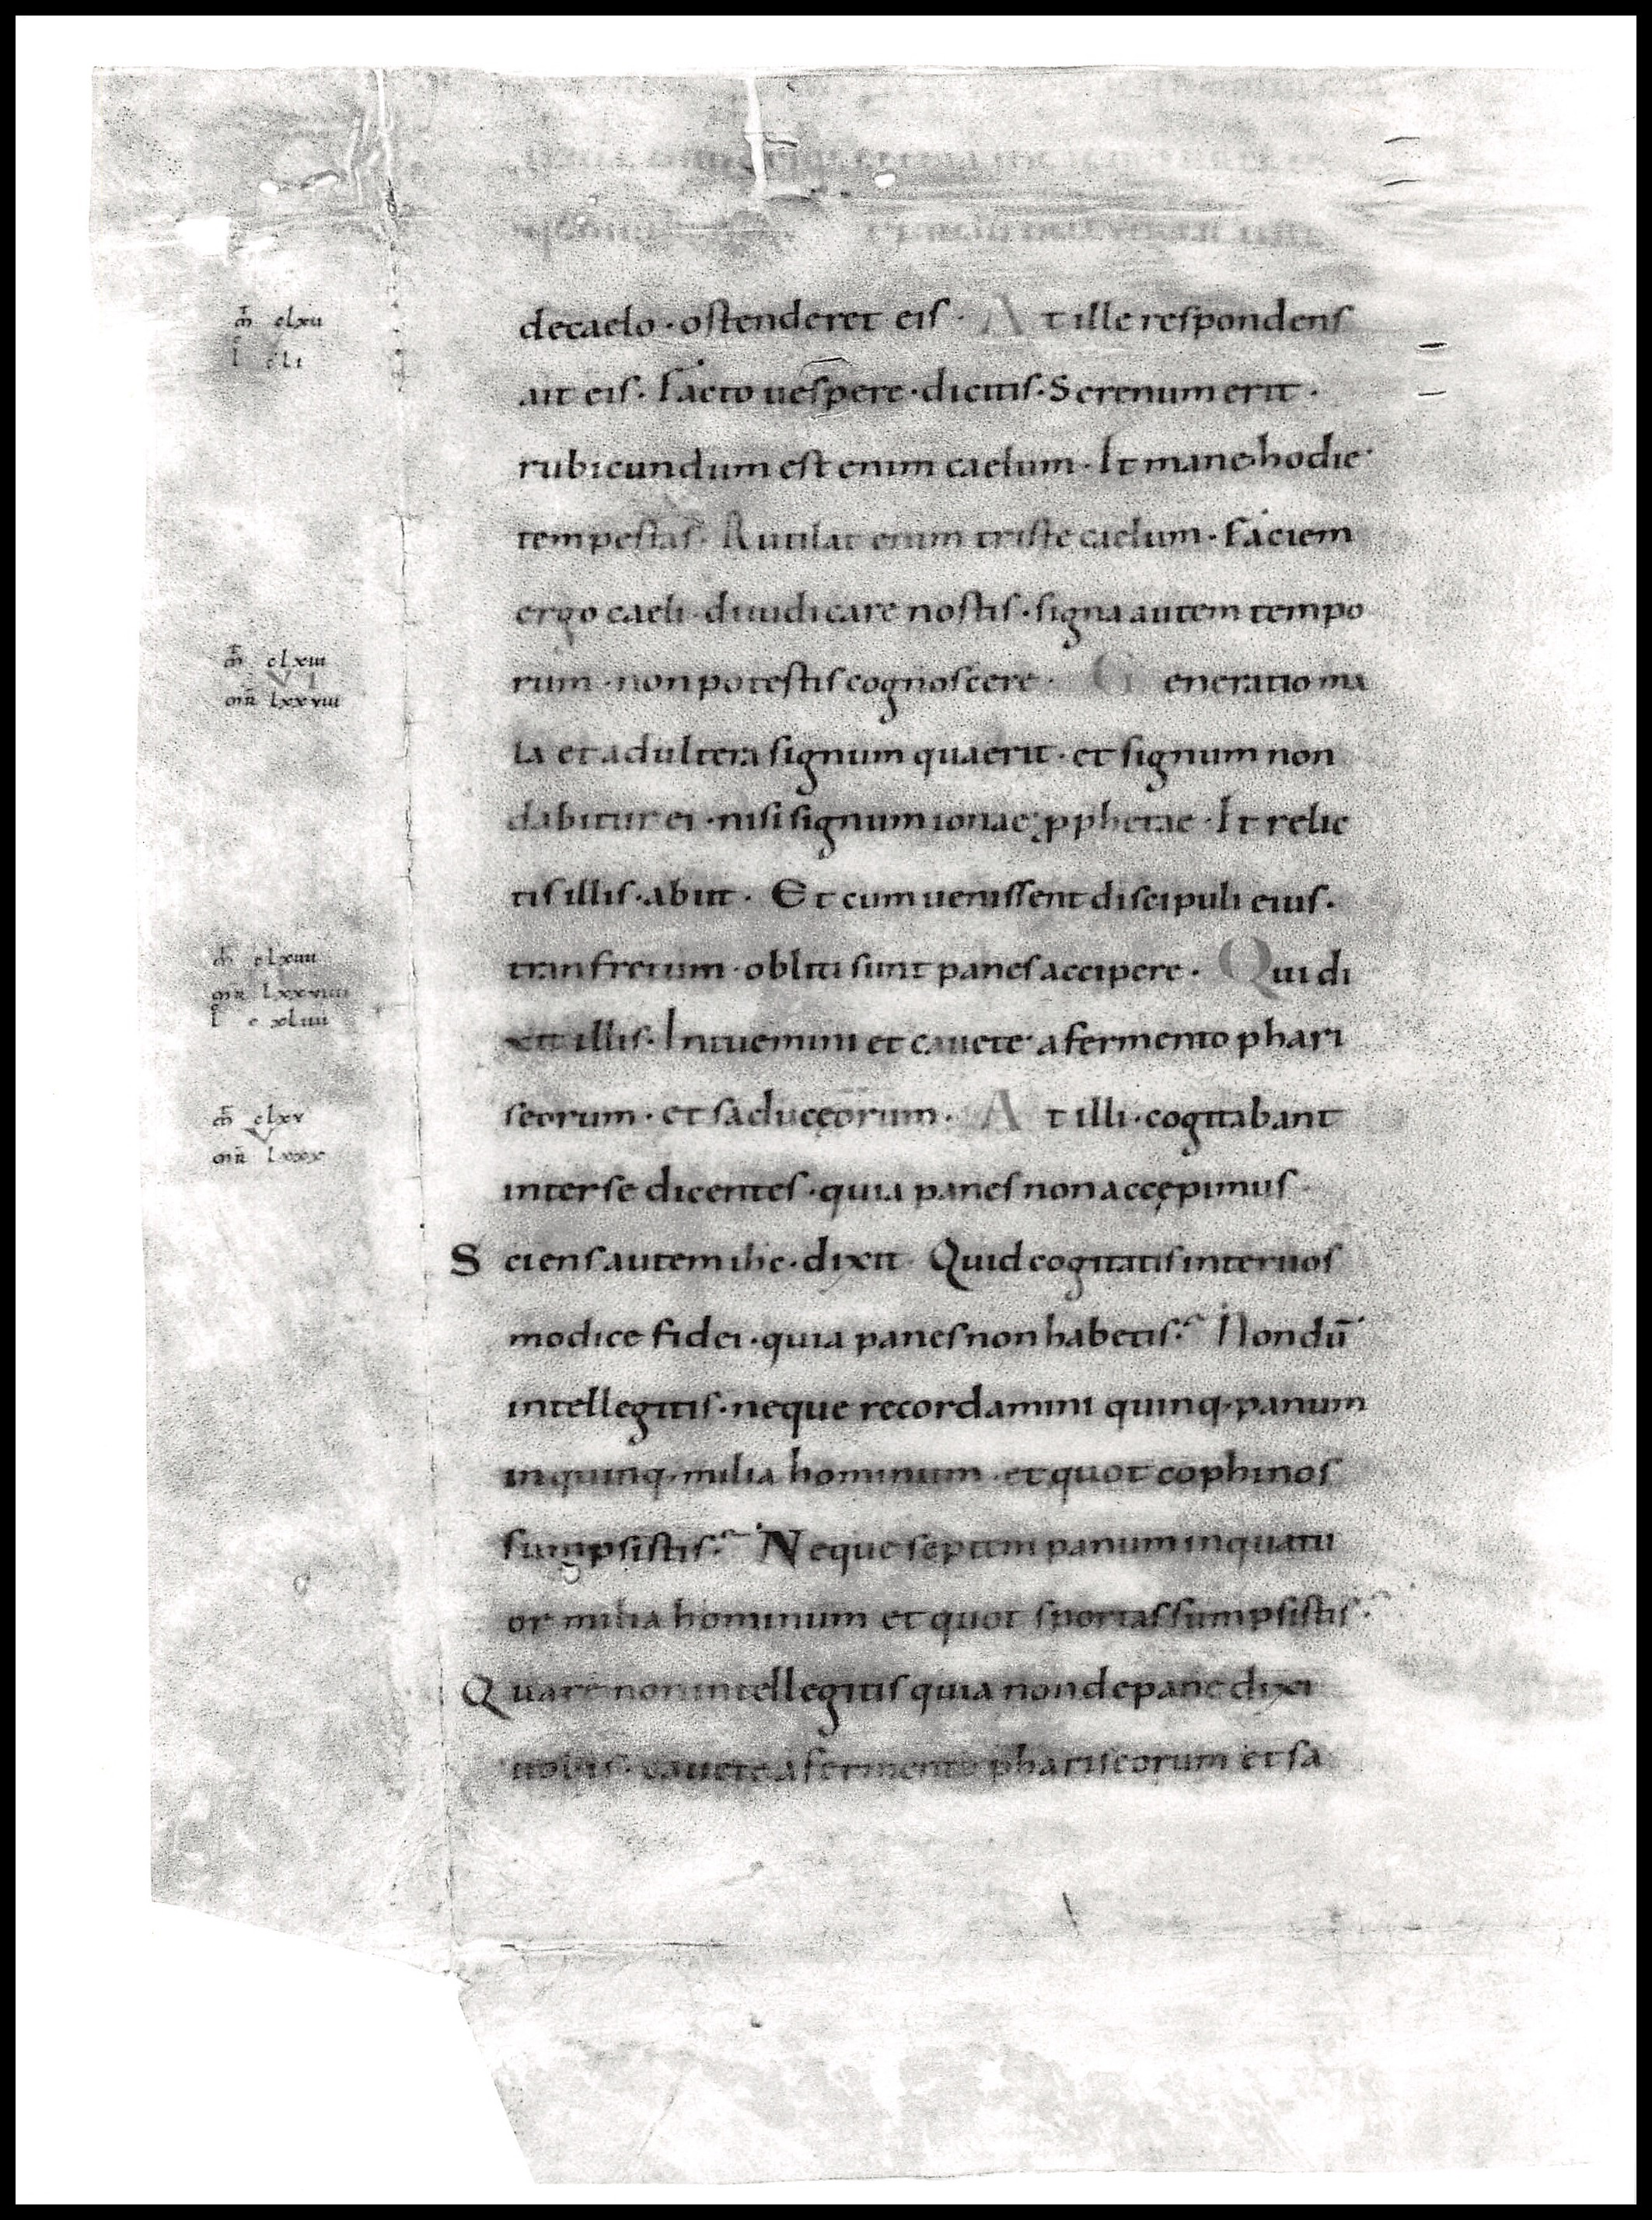 decaelo · ostenderet eis · At ille respondens
ait eis · Facto uespere · dicitis · Serenum erit ·
rubicundum est enim caelum · Et mane hodie
tempestas · Rutilat enim triste caelum · Faciem
ergo caeli diiudicare nostis · signa autem tempo
rum · non potestis cognoscere · Generatio ma
la et adultera signum quaerit · et signum non
dabitur ei · nisi signum ionae ꝓphetae · Et relic
tis illis · abiit · Et cum uenissent discipuli eius ·
tranfretum · obliti sunt panes accipere · Qui di
xit illis · Intuemini et cauete a fermento phari
seorum · et saduceorum · At illi · cogitabant
inter se dicentes · quia panes non accępimus ·
Sciens autem ihc · dixit · Quid cogitatis inter uos
modice fidei · quia panes non habetis · Nondū
intellegitis · neque recordamini quinq· panum
in quinq· milia hominum · et quot cophinos
sumpsistis · Neque septem panum in quatu
or milia hominum et quot sportas sumpsistis ·
Quare non intellegitis quia non de pane dixi
uobis · cauete a fermento phariseorum et sa
m̄ clxii
l cli
m̄ clxiii
mr̄ lxxviii
m̄ clxiiii
mr̄ lxxviiii
l cxliiii
m̄ clxv
mr̄ lxxx